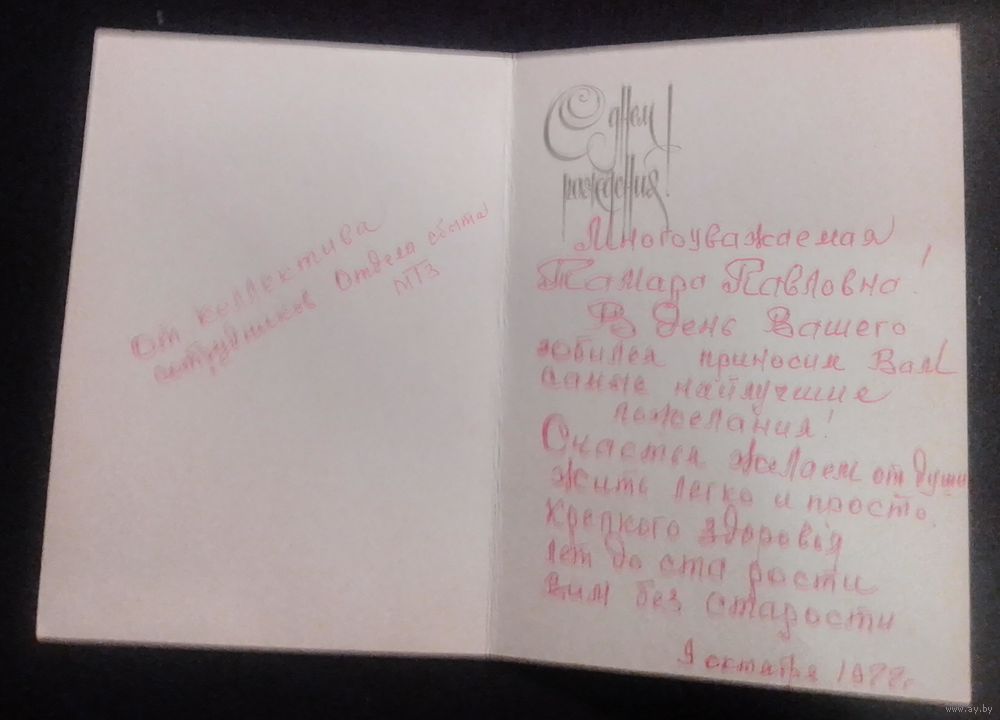 От коллектива
сотрудников Отдела сбыта
МТЗ
С днем
рождения!
Многоуважаемая
Тамара Павловна!
В день Вашего
юбилея приносим Вам
самые найлучшие
пожелания!
Счастья желаем от души
жить легко и просто,
крепкого здоровья
лет до ста расти
Вам без старости
9 октября г.
www.ay.by